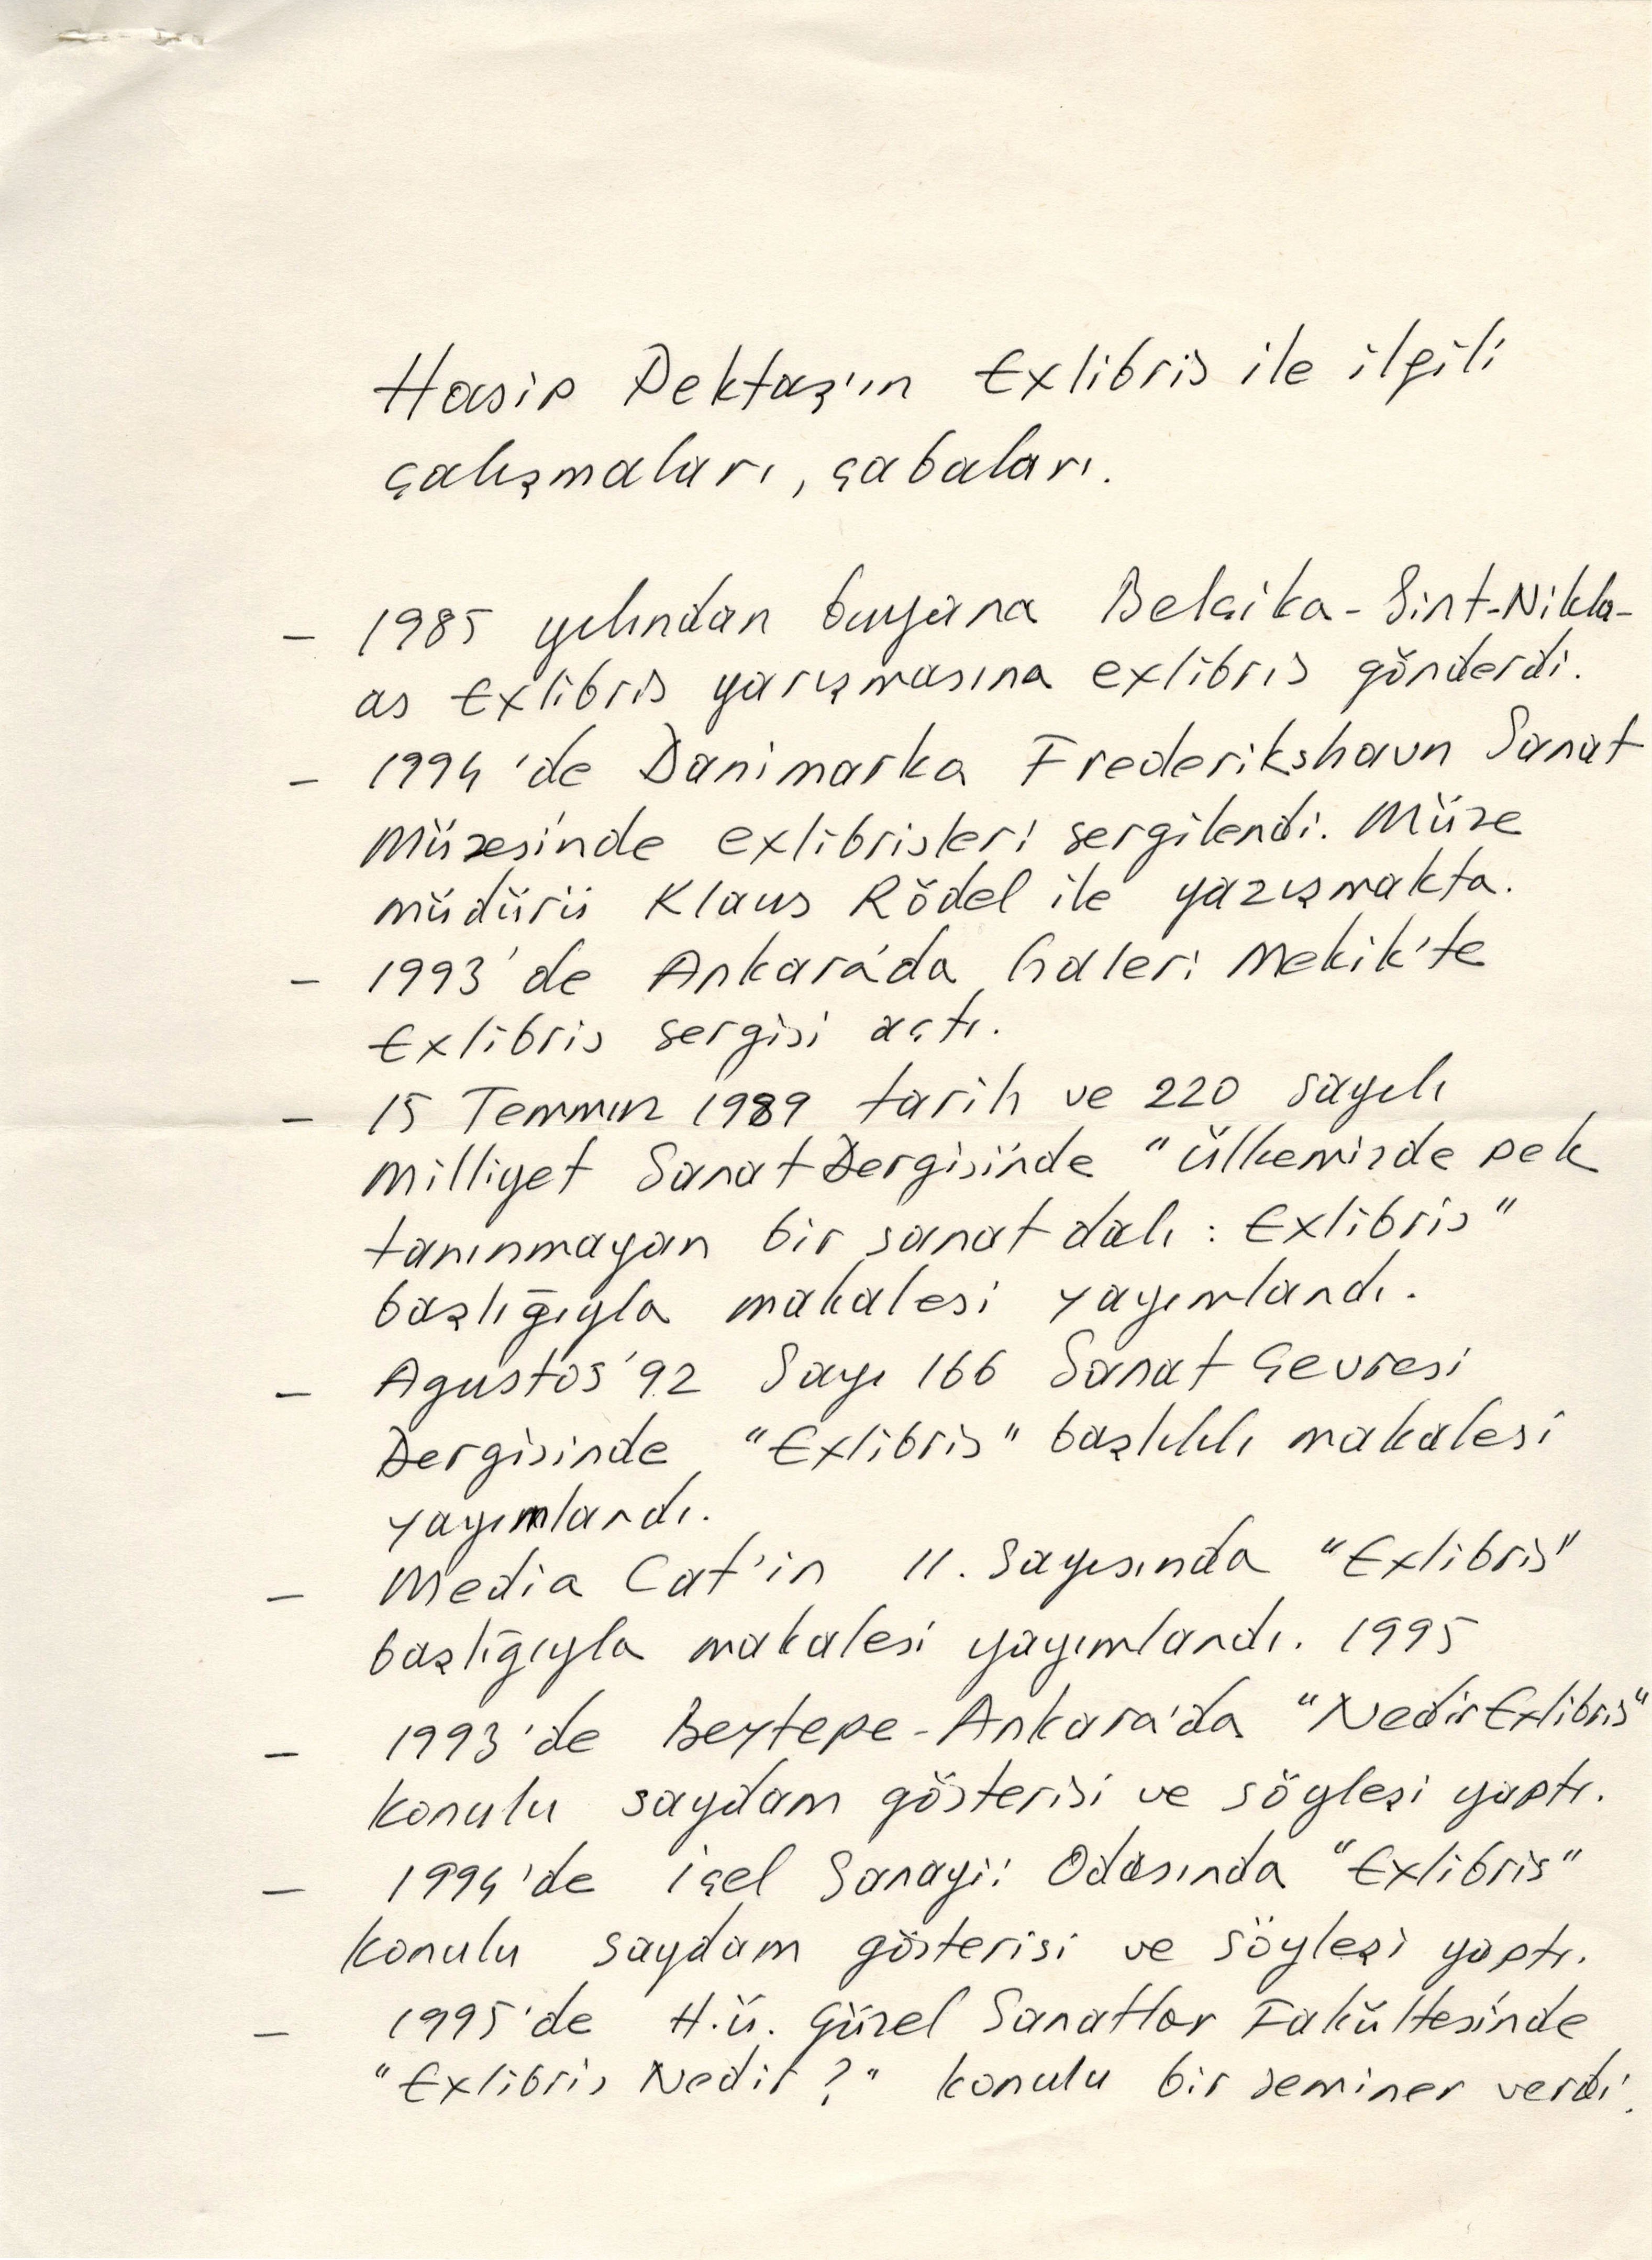 Hasip Pektaş'ın Exlibris ile ilgili
çalışmaları, çabaları.
– 1985 yılından buyana Belçika - Sint-Nikla-
as Exlibris yarışmasına exlibris gönderdi.
– 1994'de Danimarka Frederikshavn Sanat
Müzesi'nde exlibrisleri sergilendi. Müze
müdürü Klaus Rödel ile yazışmakta.
– 1993'de Ankara'da Galeri Mekik'te
Exlibris sergisi açtı.
– 15 Temmuz 1989 tarih ve 220 sayılı
Milliyet Sanat Dergisi'nde "Ülkemizde pek
tanınmayan bir sanat dalı : Exlibris"
başlığıyla makalesi yayımlandı.
– Agustos'92 Sayı 166 Sanat Çevresi
Dergisinde "Exlibris" başlıklı makalesi
yayımlandı.
– Media Cat'in 11. Sayısında "Exlibris"
başlığıyla makalesi yayımlandı. 1995
– 1993'de Beytepe-Ankara'da "Nedir Exlibris"
konulu saydam gösterisi ve söyleşi yaptı.
– 1994'de İçel Sanayii Odasında "Exlibris"
konulu saydam gösterisi ve söyleşi yaptı.
– 1995'de H.Ü. Güzel Sanatlar Fakültesi'nde
"Exlibris Nedir?" konulu bir seminer verdi.